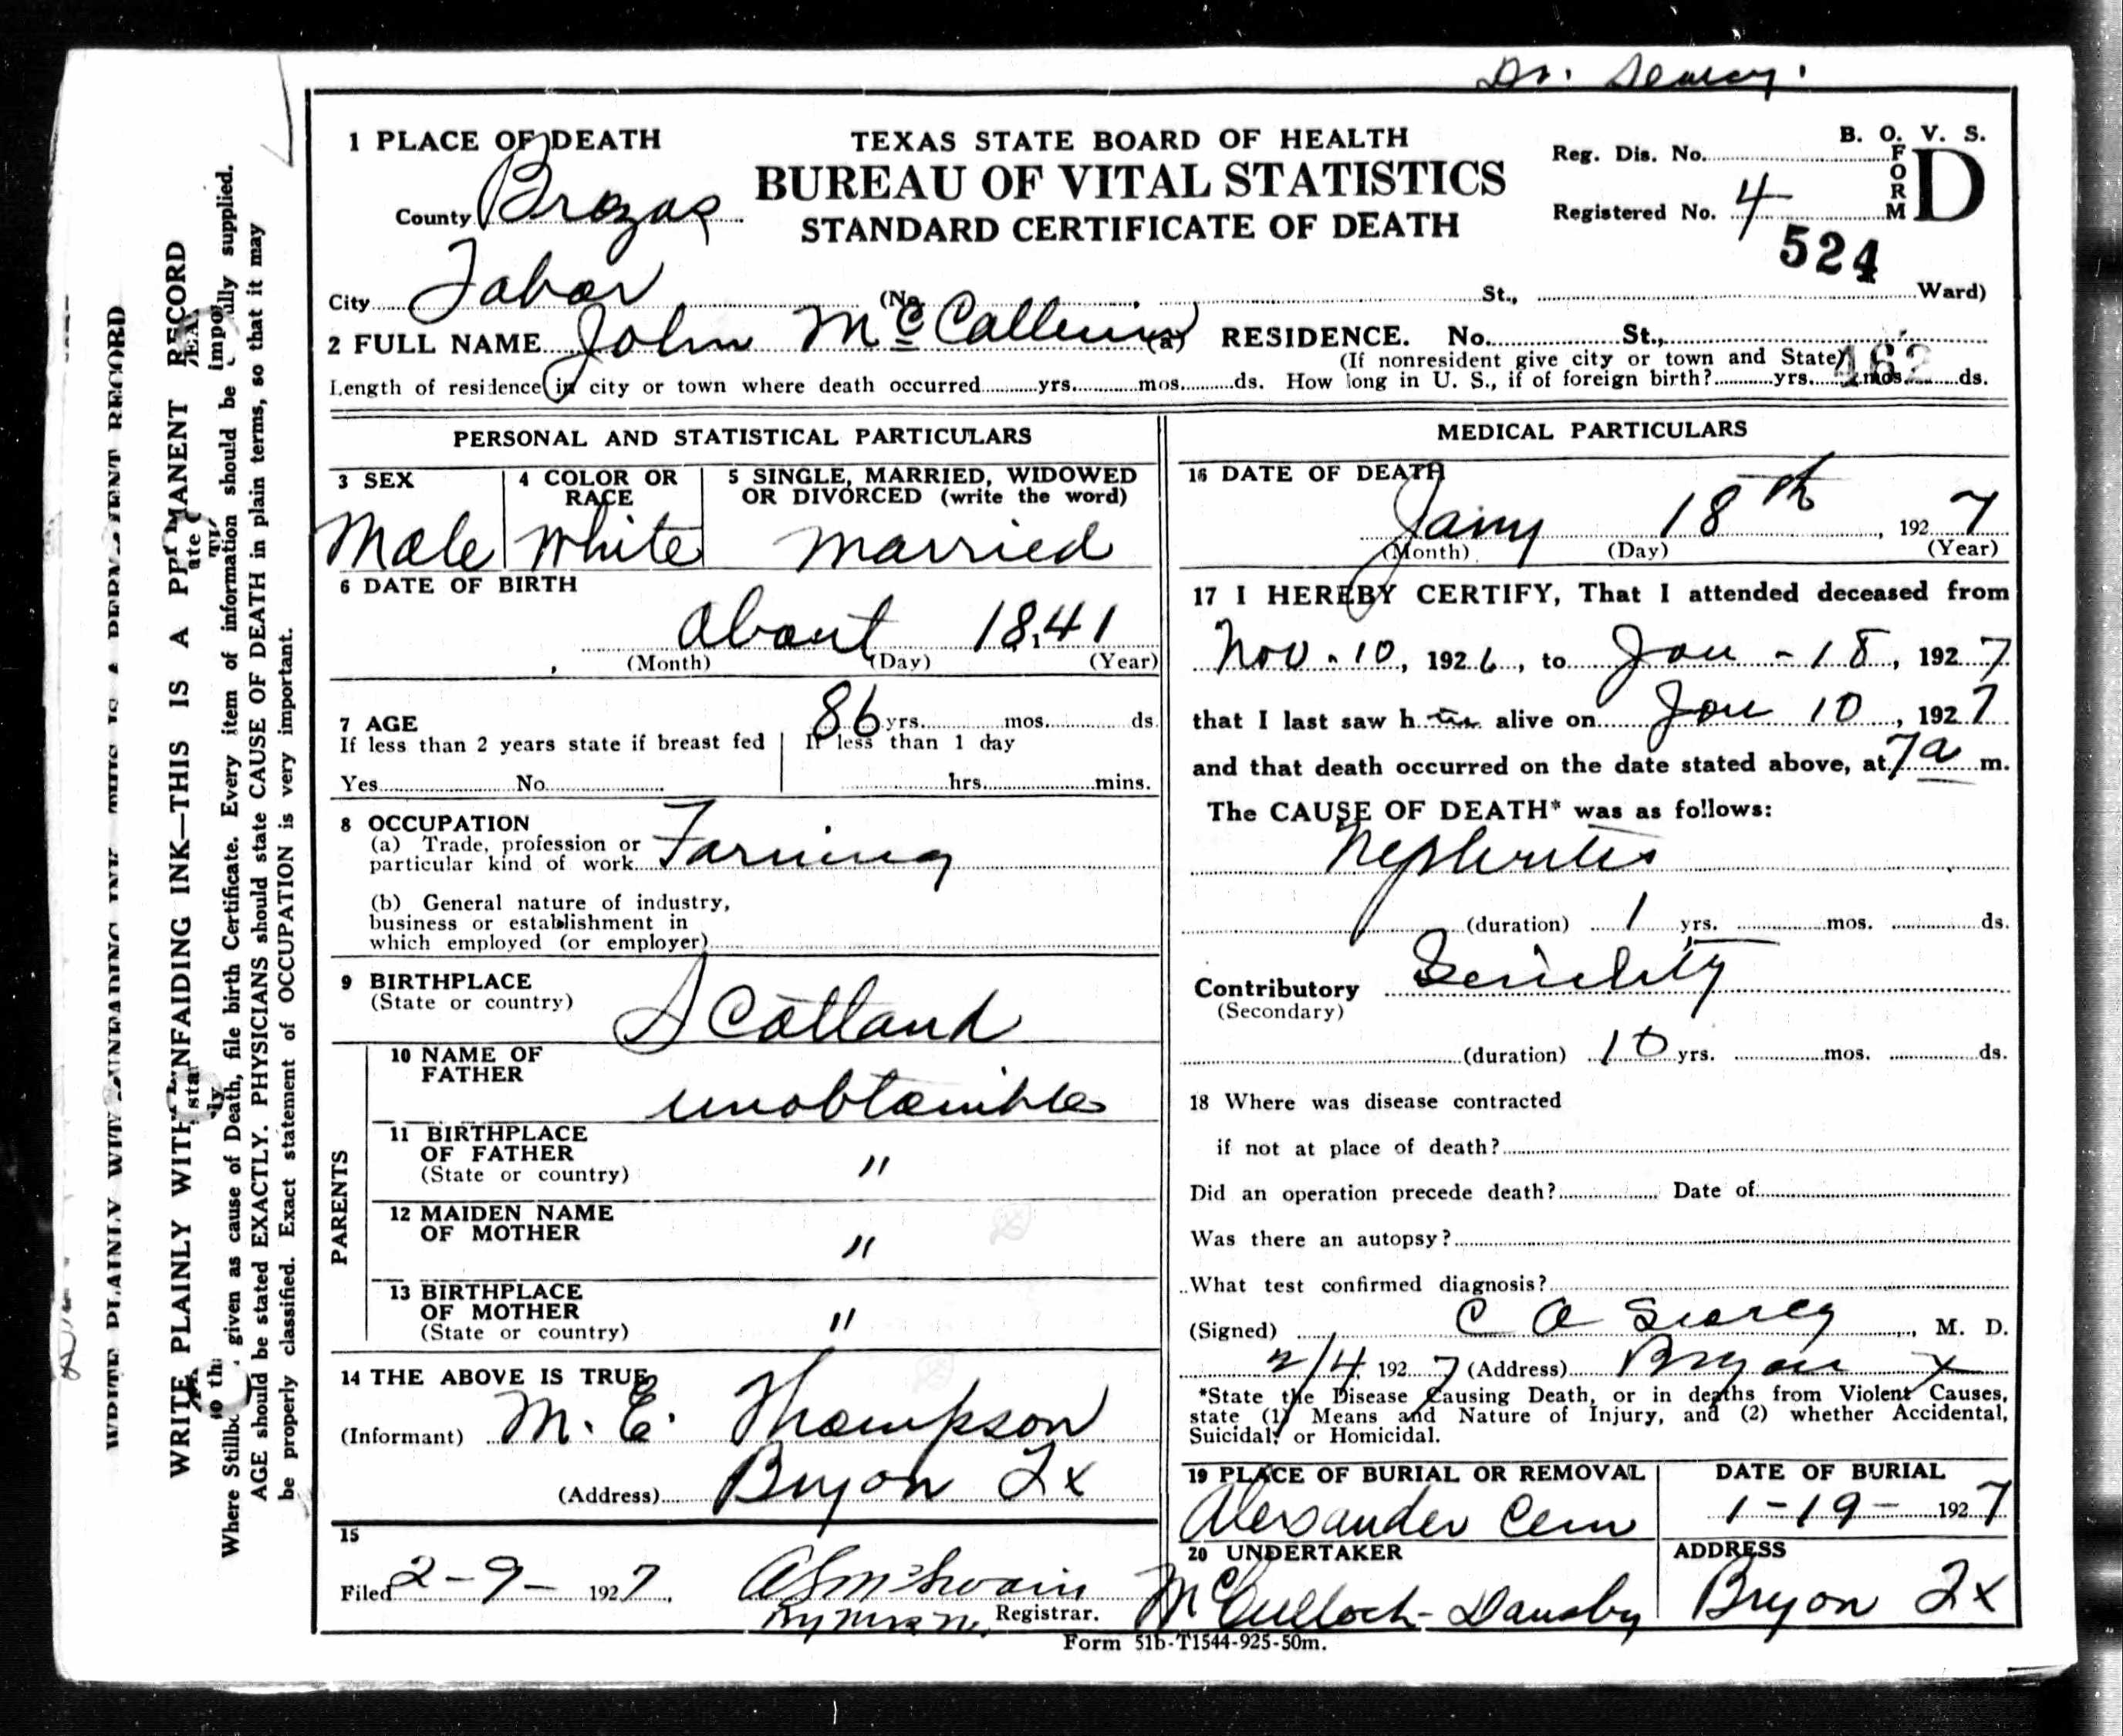 Dr. Searcy.
1 PLACE OF DEATH
TEXAS STATE BOARD OF HEALTH
BUREAU OF VITAL STATISTICS
STANDARD CERTIFICATE OF DEATH
B. O. V. S.
FORM D
Reg. Dis. No.
Registered No. 4
524
County Brazos
City Tabor (No. St., Ward)
2 FULL NAME John McCallum (a) RESIDENCE. No. St.,
(If nonresident give city or town and State)
462
Length of residence in city or town where death occurred yrs. mos. ds. How long in U. S., if of foreign birth? yrs. mos. ds.
PERSONAL AND STATISTICAL PARTICULARS
3 SEX
Male
4 COLOR OR RACE
White
5 SINGLE, MARRIED, WIDOWED
OR DIVORCED (write the word)
Married
6 DATE OF BIRTH
about 1841
(Month) (Day) (Year)
7 AGE 86 yrs. mos. ds.
If less than 2 years state if breast fed
Yes No
If less than 1 day
hrs. mins.
8 OCCUPATION
(a) Trade, profession or
particular kind of work Farming
(b) General nature of industry,
business or establishment in
which employed (or employer)
9 BIRTHPLACE
(State or country) Scotland
PARENTS
10 NAME OF
FATHER
unobtainble
11 BIRTHPLACE
OF FATHER
(State or country) "
12 MAIDEN NAME
OF MOTHER "
13 BIRTHPLACE
OF MOTHER
(State or country) "
14 THE ABOVE IS TRUE
(Informant) M. E. Thompson
(Address) Bryon Tx
15
Filed 2-9- 1927.
Registrar.
MEDICAL PARTICULARS
16 DATE OF DEATH
Jany 18th, 1927
(Month) (Day) (Year)
17 I HEREBY CERTIFY, That I attended deceased from
Nov. 10, 1926, to Jan - 18, 1927
that I last saw h im alive on Jan 10, 1927
and that death occurred on the date stated above, at 7a m.
The CAUSE OF DEATH* was as follows:
Nephritis
(duration) 1 yrs. mos. ds.
Contributory Senility
(Secondary)
(duration) 10 yrs. mos. ds.
18 Where was disease contracted
if not at place of death?
Did an operation precede death? Date of
Was there an autopsy?
What test confirmed diagnosis?
(Signed) C A Searcy, M. D.
2/4, 1927 (Address) Bryan X
*State the Disease Causing Death, or in deaths from Violent Causes,
state (1) Means and Nature of Injury, and (2) whether Accidental,
Suicidal, or Homicidal.
19 PLACE OF BURIAL OR REMOVAL
Alexander Cem
DATE OF BURIAL
1-19- 1927
20 UNDERTAKER
McCulloch-Dansby
ADDRESS
Bryon Tx
Form 51b-T1544-925-50m.
WRITE PLAINLY WITH UNFAIDING INK—THIS IS A PERMANENT RECORD
given as cause of Death, file birth Certificate. Every item of information should be supplied.
AGE should be stated EXACTLY. PHYSICIANS should state CAUSE OF DEATH in plain terms, so that it may
be properly classified. Exact statement of OCCUPATION is very important.